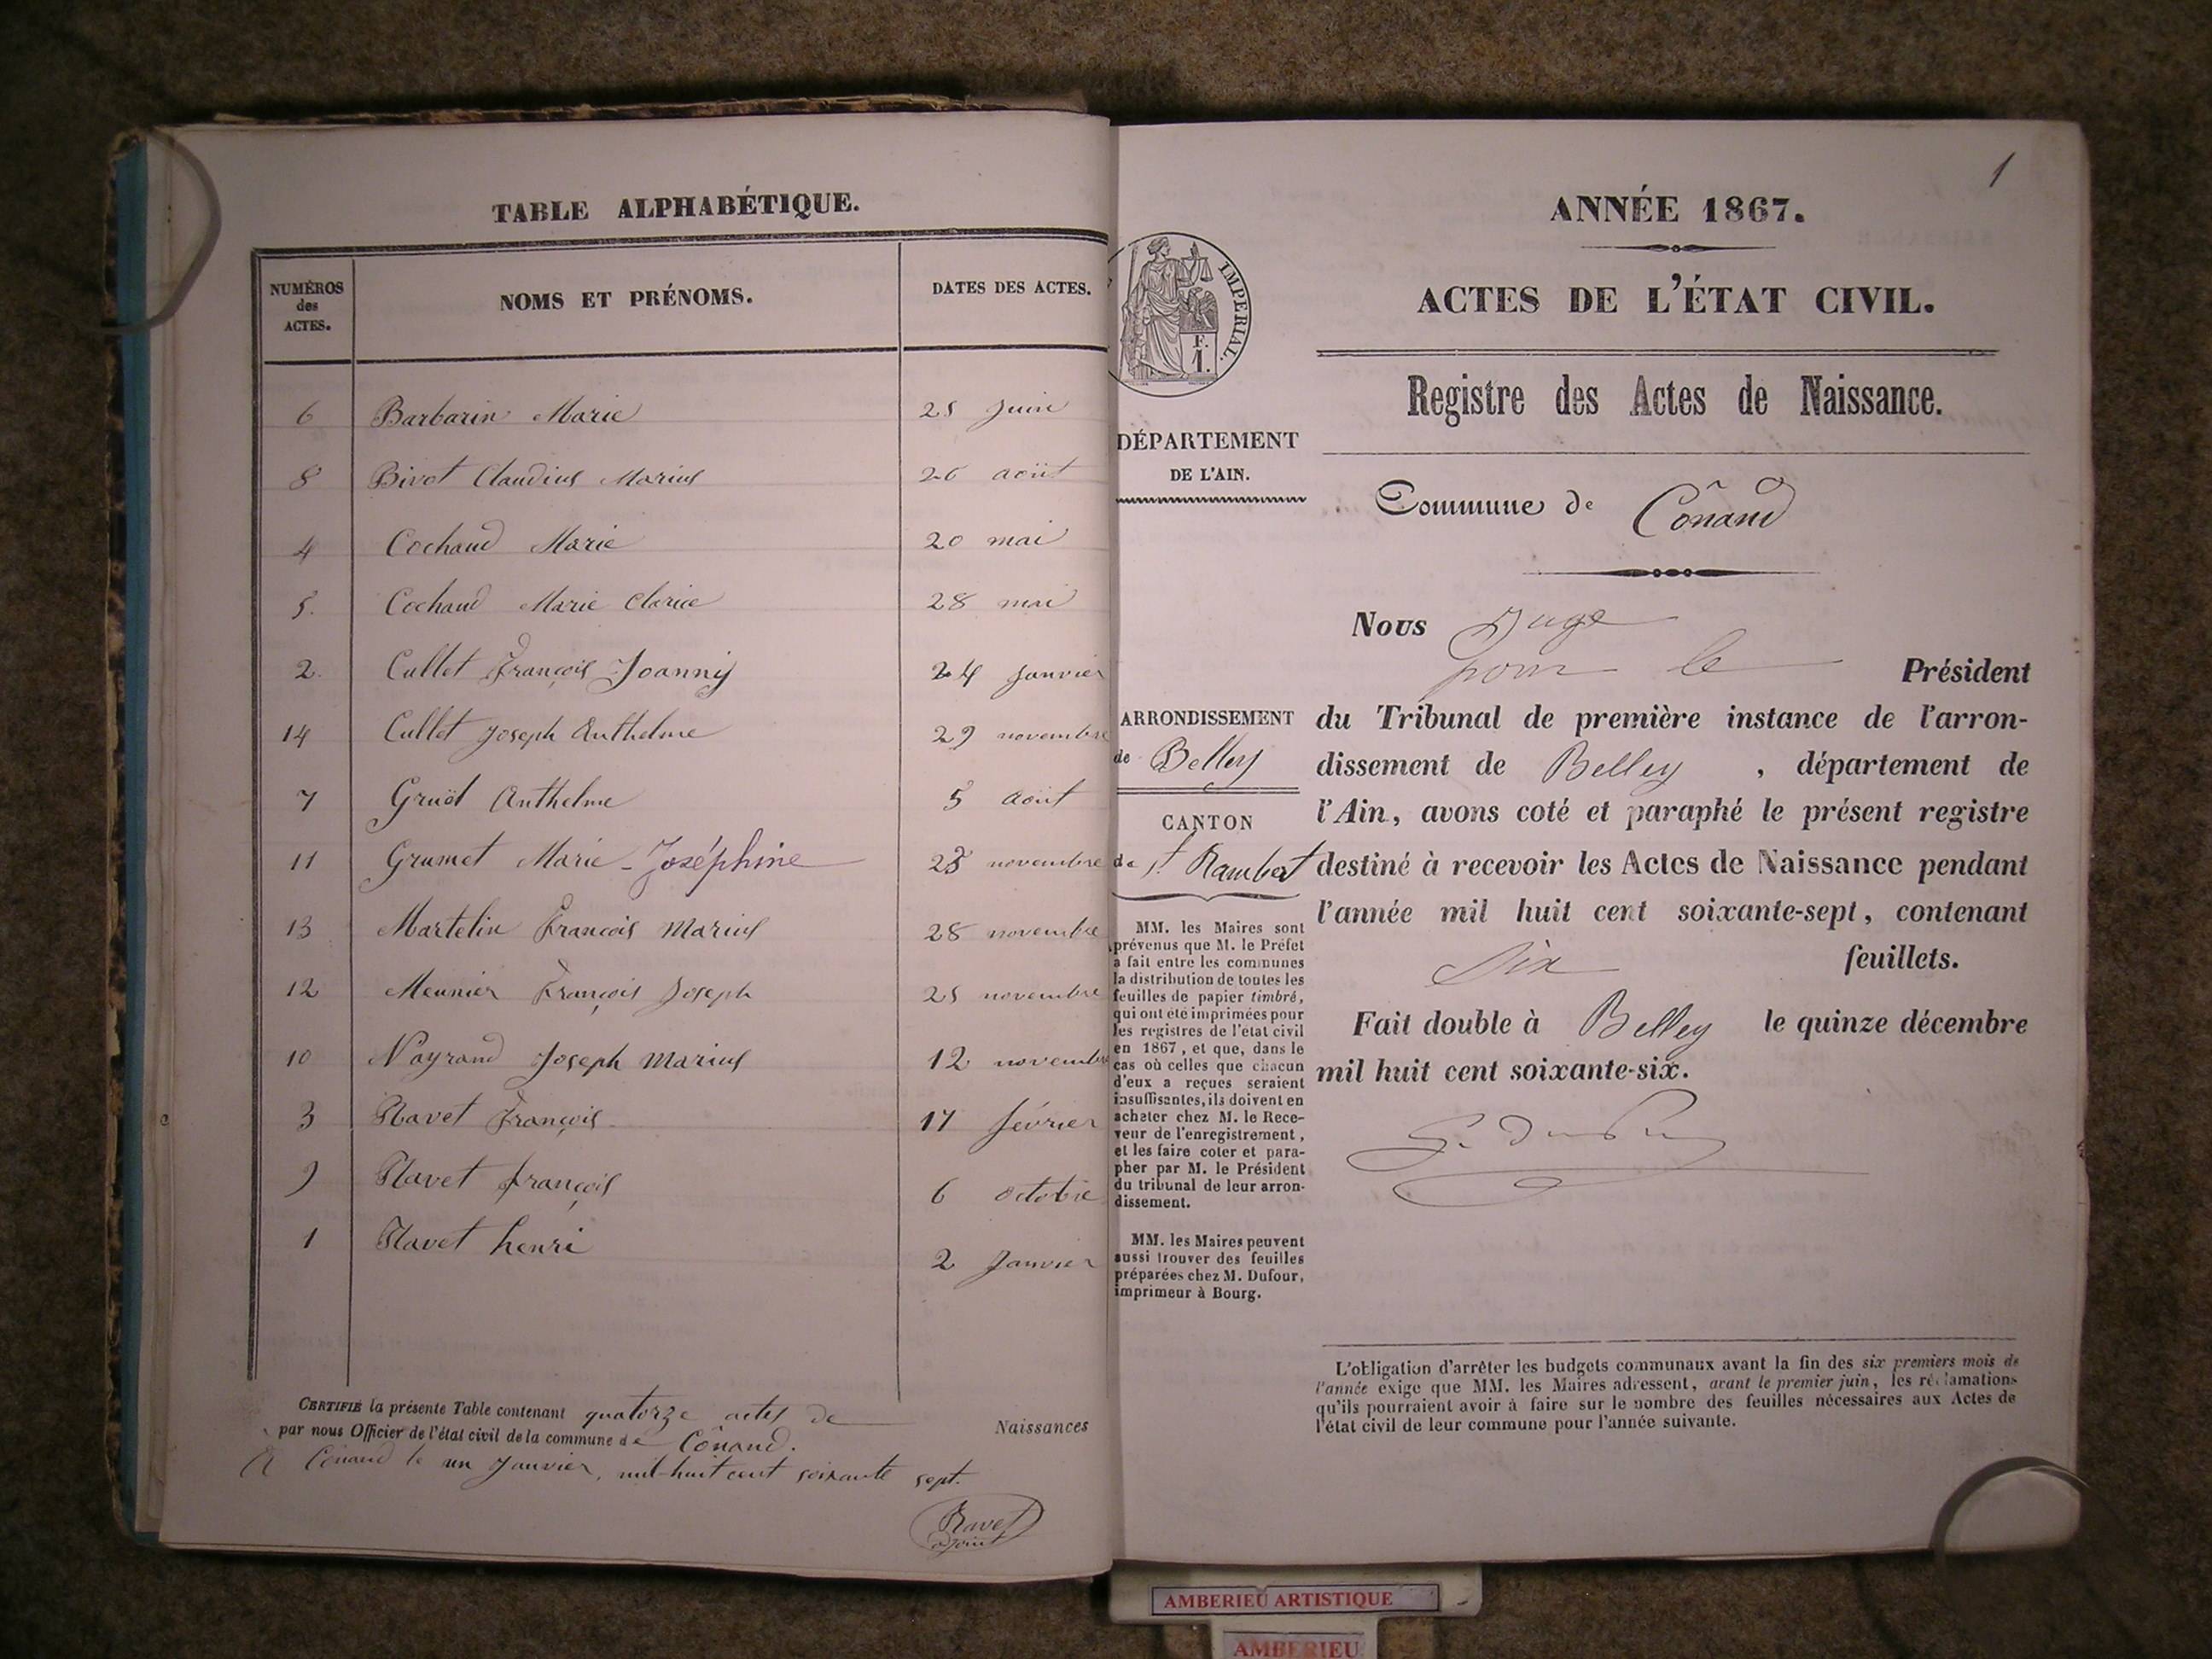 TABLE ALPHABÉTIQUE.
NUMÉROS
des
ACTES.
NOMS ET PRÉNOMS.
DATES DES ACTES.
6 Barbarin Marie 25 juin
8 Bivot Claudius Marius 26 août
4 Cochaud Marie 20 mai
5. Cochaud Marie Clarice 28 mai
2. Cullet François Joanny 24 Janvier
14 Cullet Joseph Anthelme 29 novembre
7 Anthelme 5 août
11 Grumet Marie - Joséphine novembre
13 Martelin François Marius 28 novembre
12 Meunier François Joseph 25 novembre
10 Nayrand Joseph Marius 12 novembre
3 Ravet François 17 février
9 Ravet françois 6 octobre
1 Ravet henri 2 Janvier
CERTIFIÉ la présente Table contenant quatorze actes de Naissances
par nous Officier de l'état civil de la commune de Cônand.
A Cônand le un Janvier, mil-huit cent soixante sept.
Ravet
adjoint
1
ANNÉE 1867.
ACTES DE L'ÉTAT CIVIL.
IMPERIAL.
F.
1.
Registre des Actes de Naissance.
DÉPARTEMENT
DE L'AIN.
Commune de Cônand
Nous Juge
pour le Président
du Tribunal de première instance de l'arron-
dissement de Belley, département de
l'Ain, avons coté et paraphé le présent registre
destiné à recevoir les Actes de Naissance pendant
l'année mil huit cent soixante-sept, contenant
six feuillets.
Fait double à Belley le quinze décembre
mil huit cent soixante-six.
ARRONDISSEMENT
de Belley
CANTON
de St Rambert
MM. les Maires sont
prévenus que M. le Préfet
a fait entre les communes
la distribution de toutes les
feuilles de papier timbré,
qui ont été imprimées pour
les registres de l'état civil
en 1867, et que, dans le
cas où celles que chacun
d'eux a reçues seraient
insuffisantes, ils doivent en
acheter chez M. le Rece-
veur de l'enregistrement,
et les faire coter et para-
pher par M. le Président
du tribunal de leur arron-
dissement.
MM. les Maires peuvent
aussi trouver des feuilles
préparées chez M. Dufour,
imprimeur à Bourg.
L'obligation d'arrêter les budgets communaux avant la fin des six premiers mois de
l'année exige que MM. les Maires adressent, avant le premier juin, les réclamations
qu'ils pourraient avoir à faire sur le nombre des feuilles nécessaires aux Actes de
l'état civil de leur commune pour l'année suivante.
AMBERIEU ARTISTIQUE
AMBERIEU